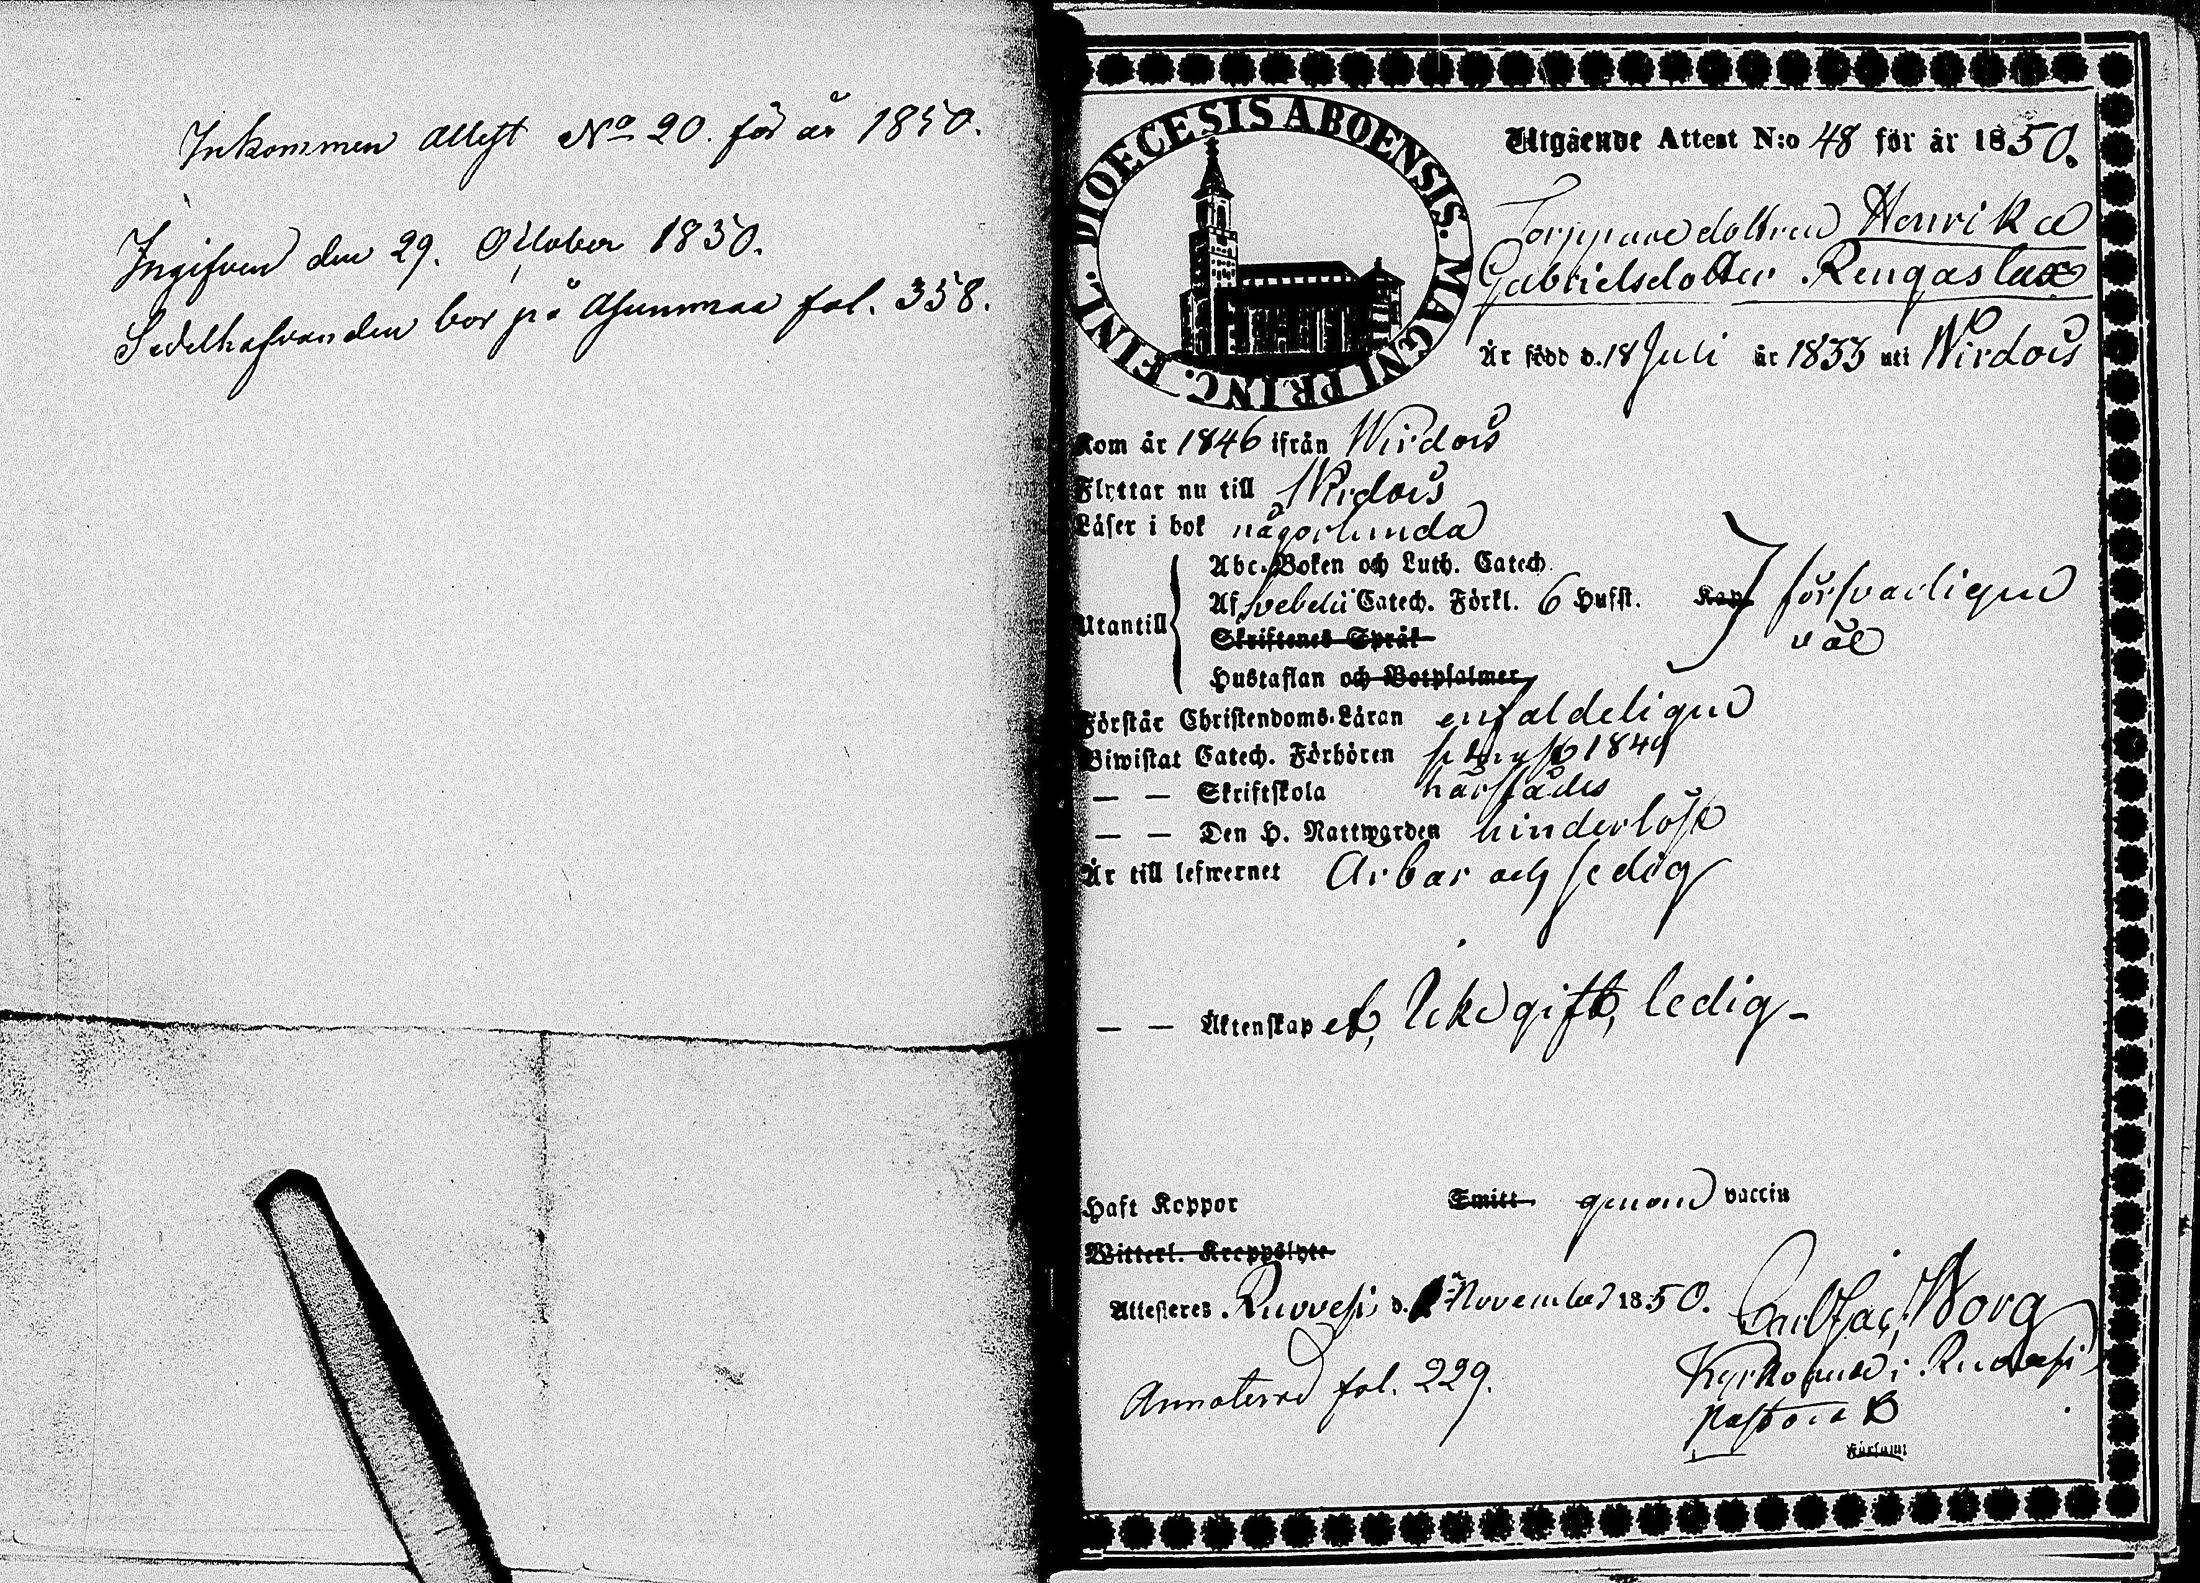 Inkommen Attest No 20. för år 1850.
Ingifven den 29. October 1850.
Sedelhafvanden bor på fol. 358.
DIOECESIS ABOENSIS. MAGNI PRINC. FINL.
Utgående Attest N:o 48 för år 1850.
Torpparedottren Henrika
Gabrielsdotter Rengaslax
Är född d. 18 Juli år 1833 uti Wirdois
Kom år 1846 ifrån Wirdois
Flyttar nu till Wirdois
Läser i bok någorlunda
Utantill
Abc-Boken och Luth. Catech.
Af Svebelii Catech. Förkl. 6 Hufst. Kap.
försvarligen
väl
Skriftenes Språk
Hustaflan och Botpsalmer
Förstår Christendoms-Läran enfaldeligen
Biwistat Catech. Förhören 1849
— — Skriftskola härstädes
— — Den H. Nattwarden hinderlöst
Är till lefwernet Ärbar och sedig
— — Äktenskap ej, Icke gift, ledig -
Haft Koppor Smitt- genom vaccin
Witterl. Kroppslyte
Attesteres Ruovesi d. November 1850.
Borg
Annoterad fol. 229.
Kyrkoherde i Ruovesi
Pastorat
Församl